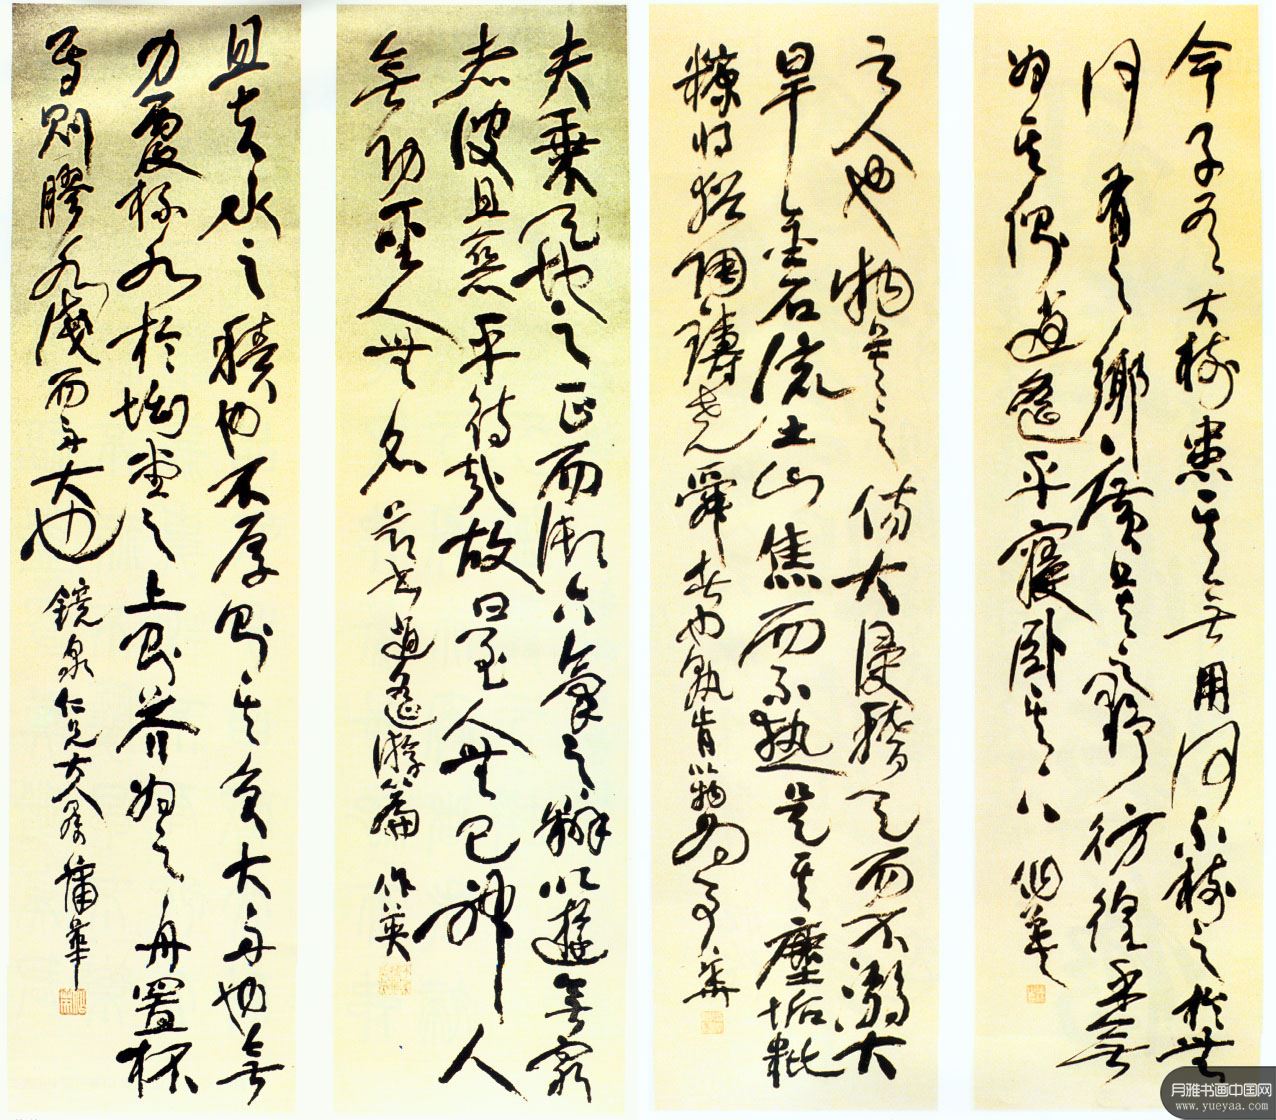 今子有大樹患其無用何不樹之於無
何有之鄉廣莫之野彷徨乎無
為其側逍遙乎寢臥其下 作英
之人也物莫之傷大浸稽天而不溺大
旱金石流土山焦而不熱是其塵垢粃
糠將猶陶鑄堯舜者也孰肯以物為事 華
夫乘天地之正而御六氣之辯以遊無窮
者彼且惡乎待哉故曰至人無己神人
無功聖人無名 書逍遙游篇 作英
且夫水之積也不厚則其負大舟也無
力覆杯水於坳堂之上則芥為之舟置杯
焉則膠水淺而舟大也 鏡泉仁兄大人屬 蒲華
月雅书画中国网
www.yueyaa.com